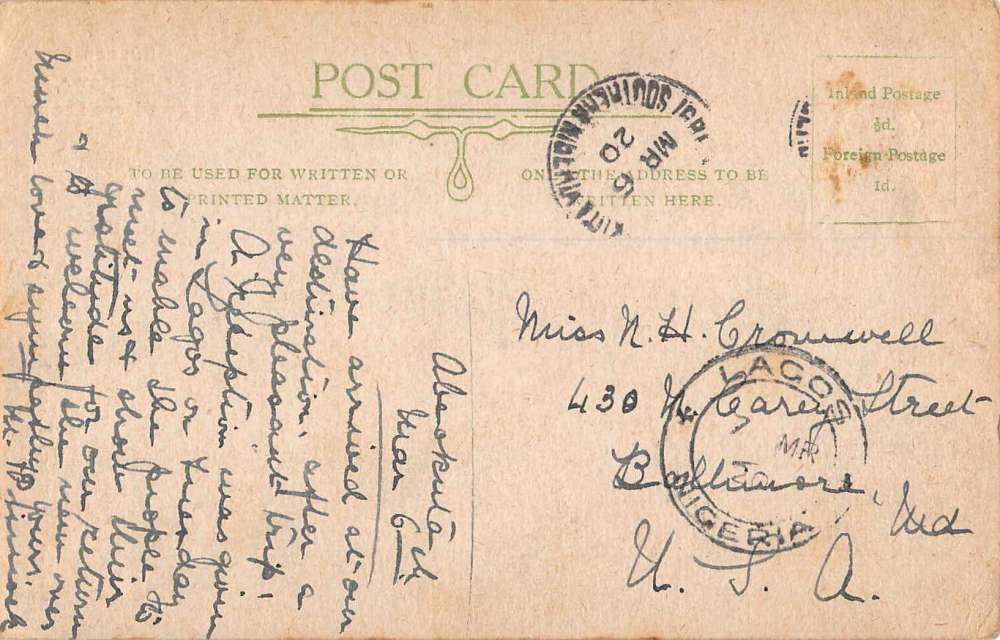 POST CARD
TO BE USED FOR WRITTEN OR
PRINTED MATTER.
ONLY THE ADDRESS TO BE
WRITTEN HERE.
Inland Postage
½d.
Foreign Postage
1d.
SOUTHERN NIGERIA
MR 6
20
LAGOS
MR
NIGERIA
Miss N. H. Cromwell
430 N. Carey Street
Baltimore, Md
U. S. A.
Abeokuta
Mar 6
Have arrived at our
destination, after a
very pleasant trip.
A Reception was given
in Lagos on Tuesday
to enable the people to
meet us & show their
gratitude for our return
& to welcome the new ones
much love & sympathy yours.